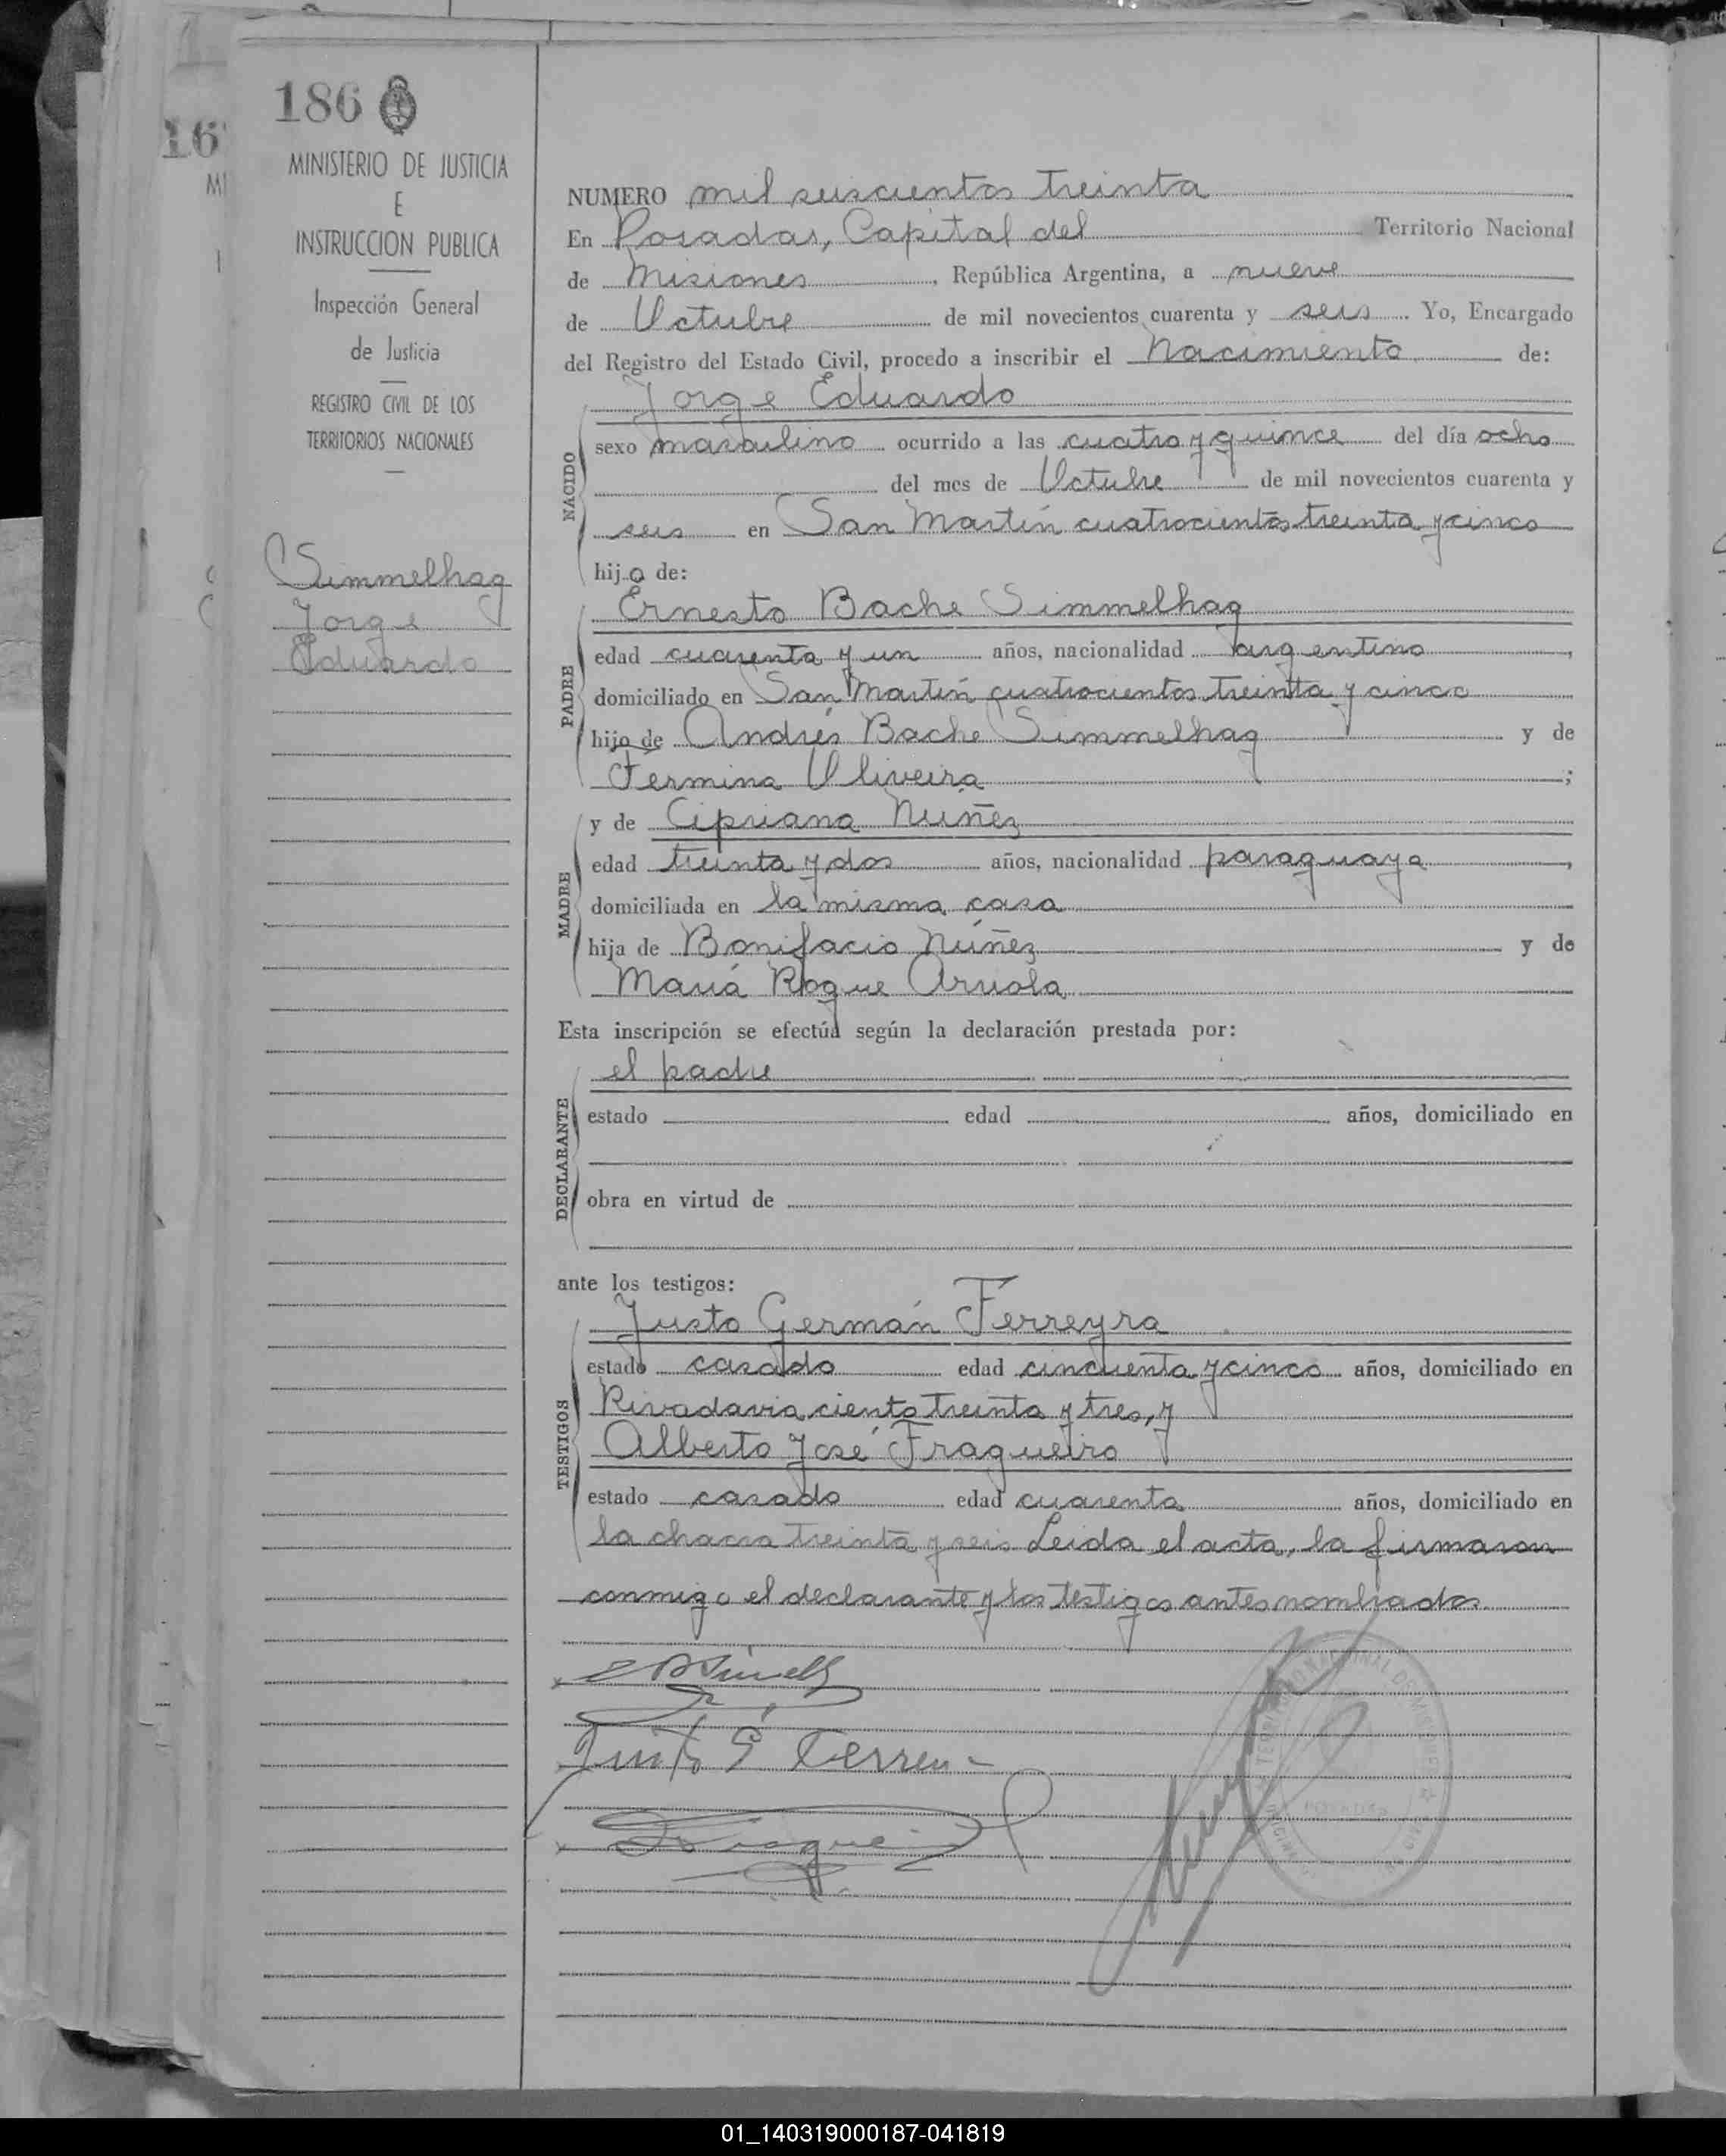 186
MINISTERIO DE JUSTICIA
E
INSTRUCCION PUBLICA
Inspección General
de Justicia
REGISTRO CIVIL DE LOS
TERRITORIOS NACIONALES
Simmelhag
Jorge
Eduardo
NUMERO mil seiscientos treinta
En Posadas, Capital del Territorio Nacional
de Misiones, República Argentina, a nueve
de Octubre de mil novecientos cuarenta y seis. Yo, Encargado
del Registro del Estado Civil, procedo a inscribir el Nacimiento de:
NACIDO
Jorge Eduardo
sexo masculino ocurrido a las cuatro y quince del día ocho
del mes de Octubre de mil novecientos cuarenta y
seis en San Martín cuatrocientos treinta y cinco
hijo de:
PADRE
Ernesto Bache Simmelhag
edad cuarenta y un años, nacionalidad argentino,
domiciliado en San Martín cuatrocientos treinta y cinco
hijo de Andrés Bache Simmelhag y de
Fermina Oliveira;
MADRE
y de Cipriana Núñez
edad treinta y dos años, nacionalidad paraguaya,
domiciliada en la misma casa
hija de Bonifacio Núñez y de
María Roque Arriola
Esta inscripción se efectúa según la declaración prestada por:
DECLARANTE
el padre
estado edad años, domiciliado en
obra en virtud de
ante los testigos:
TESTIGOS
Justo Germán Ferreyra
estado casado edad cincuenta y cinco años, domiciliado en
Rivadavia ciento treinta y tres, y
Alberto José Fragueiro
estado casado edad cuarenta años, domiciliado en
la chacra treinta y seis Leida el acta, la firmaron
conmigo el declarante y los testigos antes nombrados
01_140319000187-041819